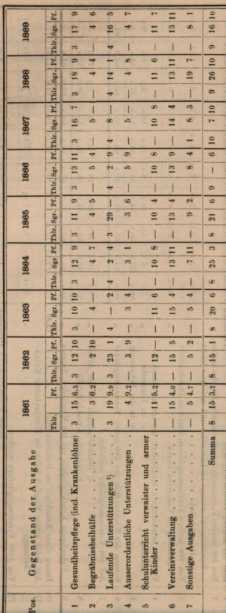 Pos. Gegenstand der Ausgabe 1861 1862 1863 1864 1865 1866 1867 1868 1869
Thlr. Sgr. Pf. Thlr. Sgr. Pf. Thlr. Sgr. Pf. Thlr. Sgr. Pf. Thlr. Sgr. Pf. Thlr. Sgr. Pf. Thlr. Sgr. Pf. Thlr. Sgr. Pf. Thlr. Sgr. Pf.
1 Gesundheitspflege (incl. Krankenlöhne) 3 15 6.3 3 12 10 3 10 10 3 12 9 3 11 9 3 13 11 3 16 7 3 18 9 3 17 9
2 Begräbnissbeihülfe — 3 0.2 — 2 10 — 4 — — 4 7 — 4 5 — 5 4 — 5 — — 4 4 — 4 6
3 Laufende Unterstützungen ¹) 3 19 9.9 3 23 1 4 — 2 4 2 4 3 29 — 4 2 9 4 — 8 4 14 1 4 16 5
4 Ausserordentliche Unterstützungen — 4 9.2 — 3 9 — 3 4 — 3 1 — 3 6 — 5 9 — 5 — — 4 8 — 4 7
5 Schulunterricht verwaister und armer
Kinder — 11 5.2 — 12 — — 11 6 — 10 8 — 10 4 — 10 8 — 10 8 — 11 6 — 11 7
6 Vereinsverwaltung — 15 4.0 — 15 5 — 15 4 — 13 11 — 13 4 — 13 9 — 14 4 — 13 11 — 13 11
7 Sonstige Ausgaben — 5 4.7 — 5 2 — 5 4 — 7 11 — 9 2 — 8 4 — 8 3 — 19 7 — 8 1
Summa 8 15 3.7 8 15 1 8 20 6 8 25 3 8 21 6 9 — 6 10 7 10 9 26 10 9 16 10